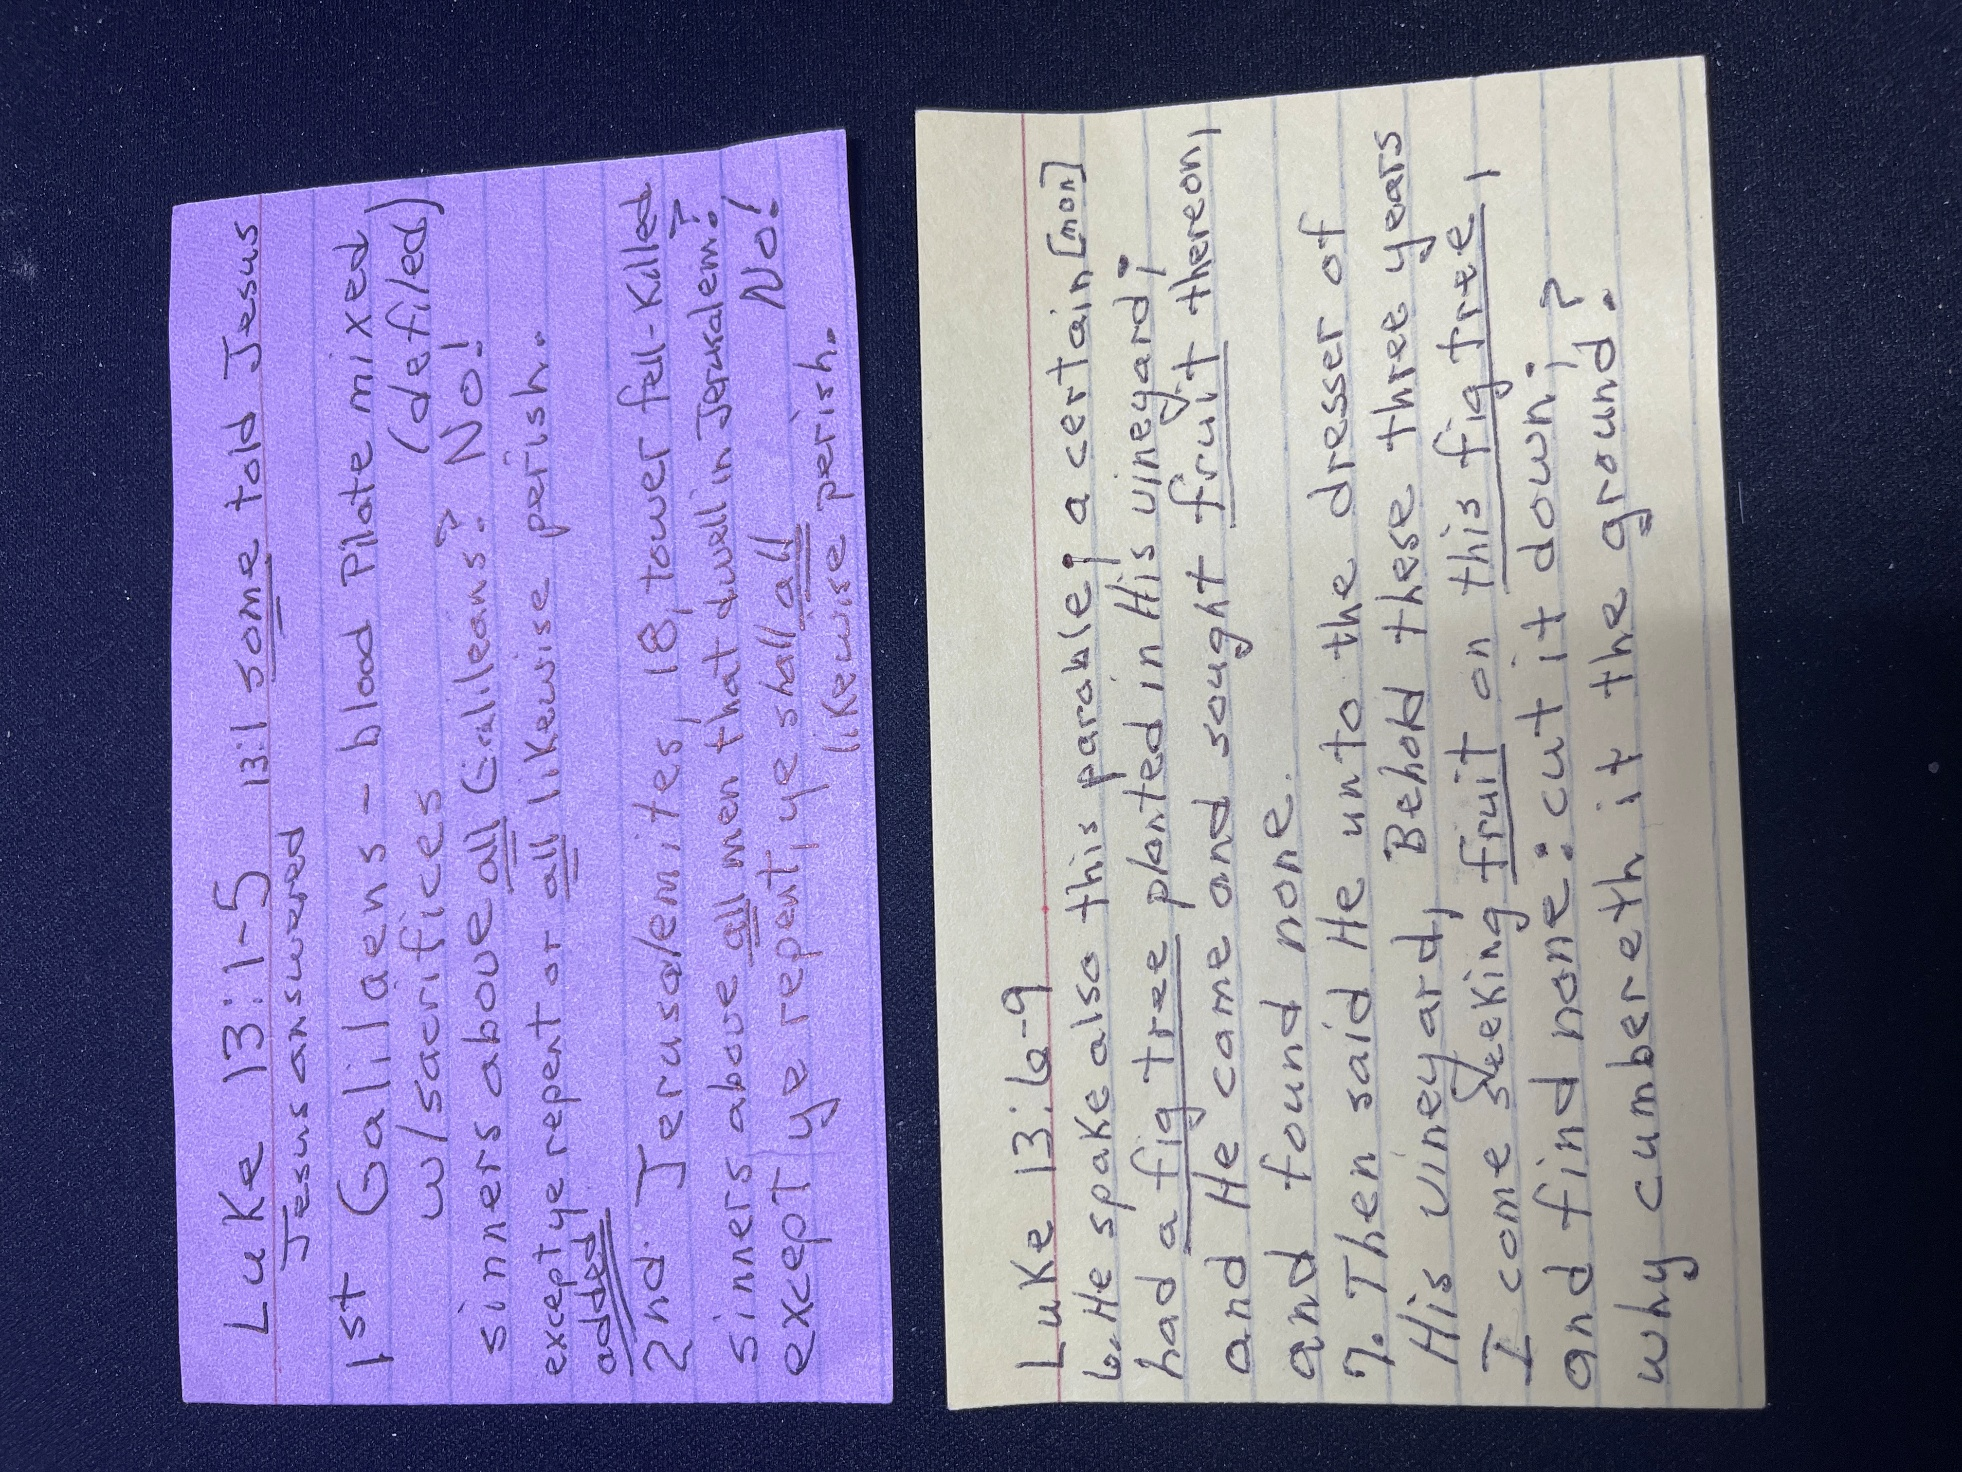 Luke 13:1-5 13:1 some told Jesus
Jesus answered
1st Galilaens - blood Pilate mixed
w/sacrifices (defiled)
sinners above all Galileans? No!
except ye repent or all likewise perish.
added
2nd. Jerusalemites, 18, tower fell-Killed
sinners above all men that dwell in Jerusalem?
except ye repent, ye shall all No!
likewise perish.
Luke 13:6-9
6. He spake also this parable; a certain [man]
had a fig tree planted in His vineyard;
and He came and sought fruit thereon,
and found none.
7. Then said He unto the dresser of
His vineyard, Behold these three years
I come seeking fruit on this fig tree,
and find none: cut it down;
why cumbereth it the ground?